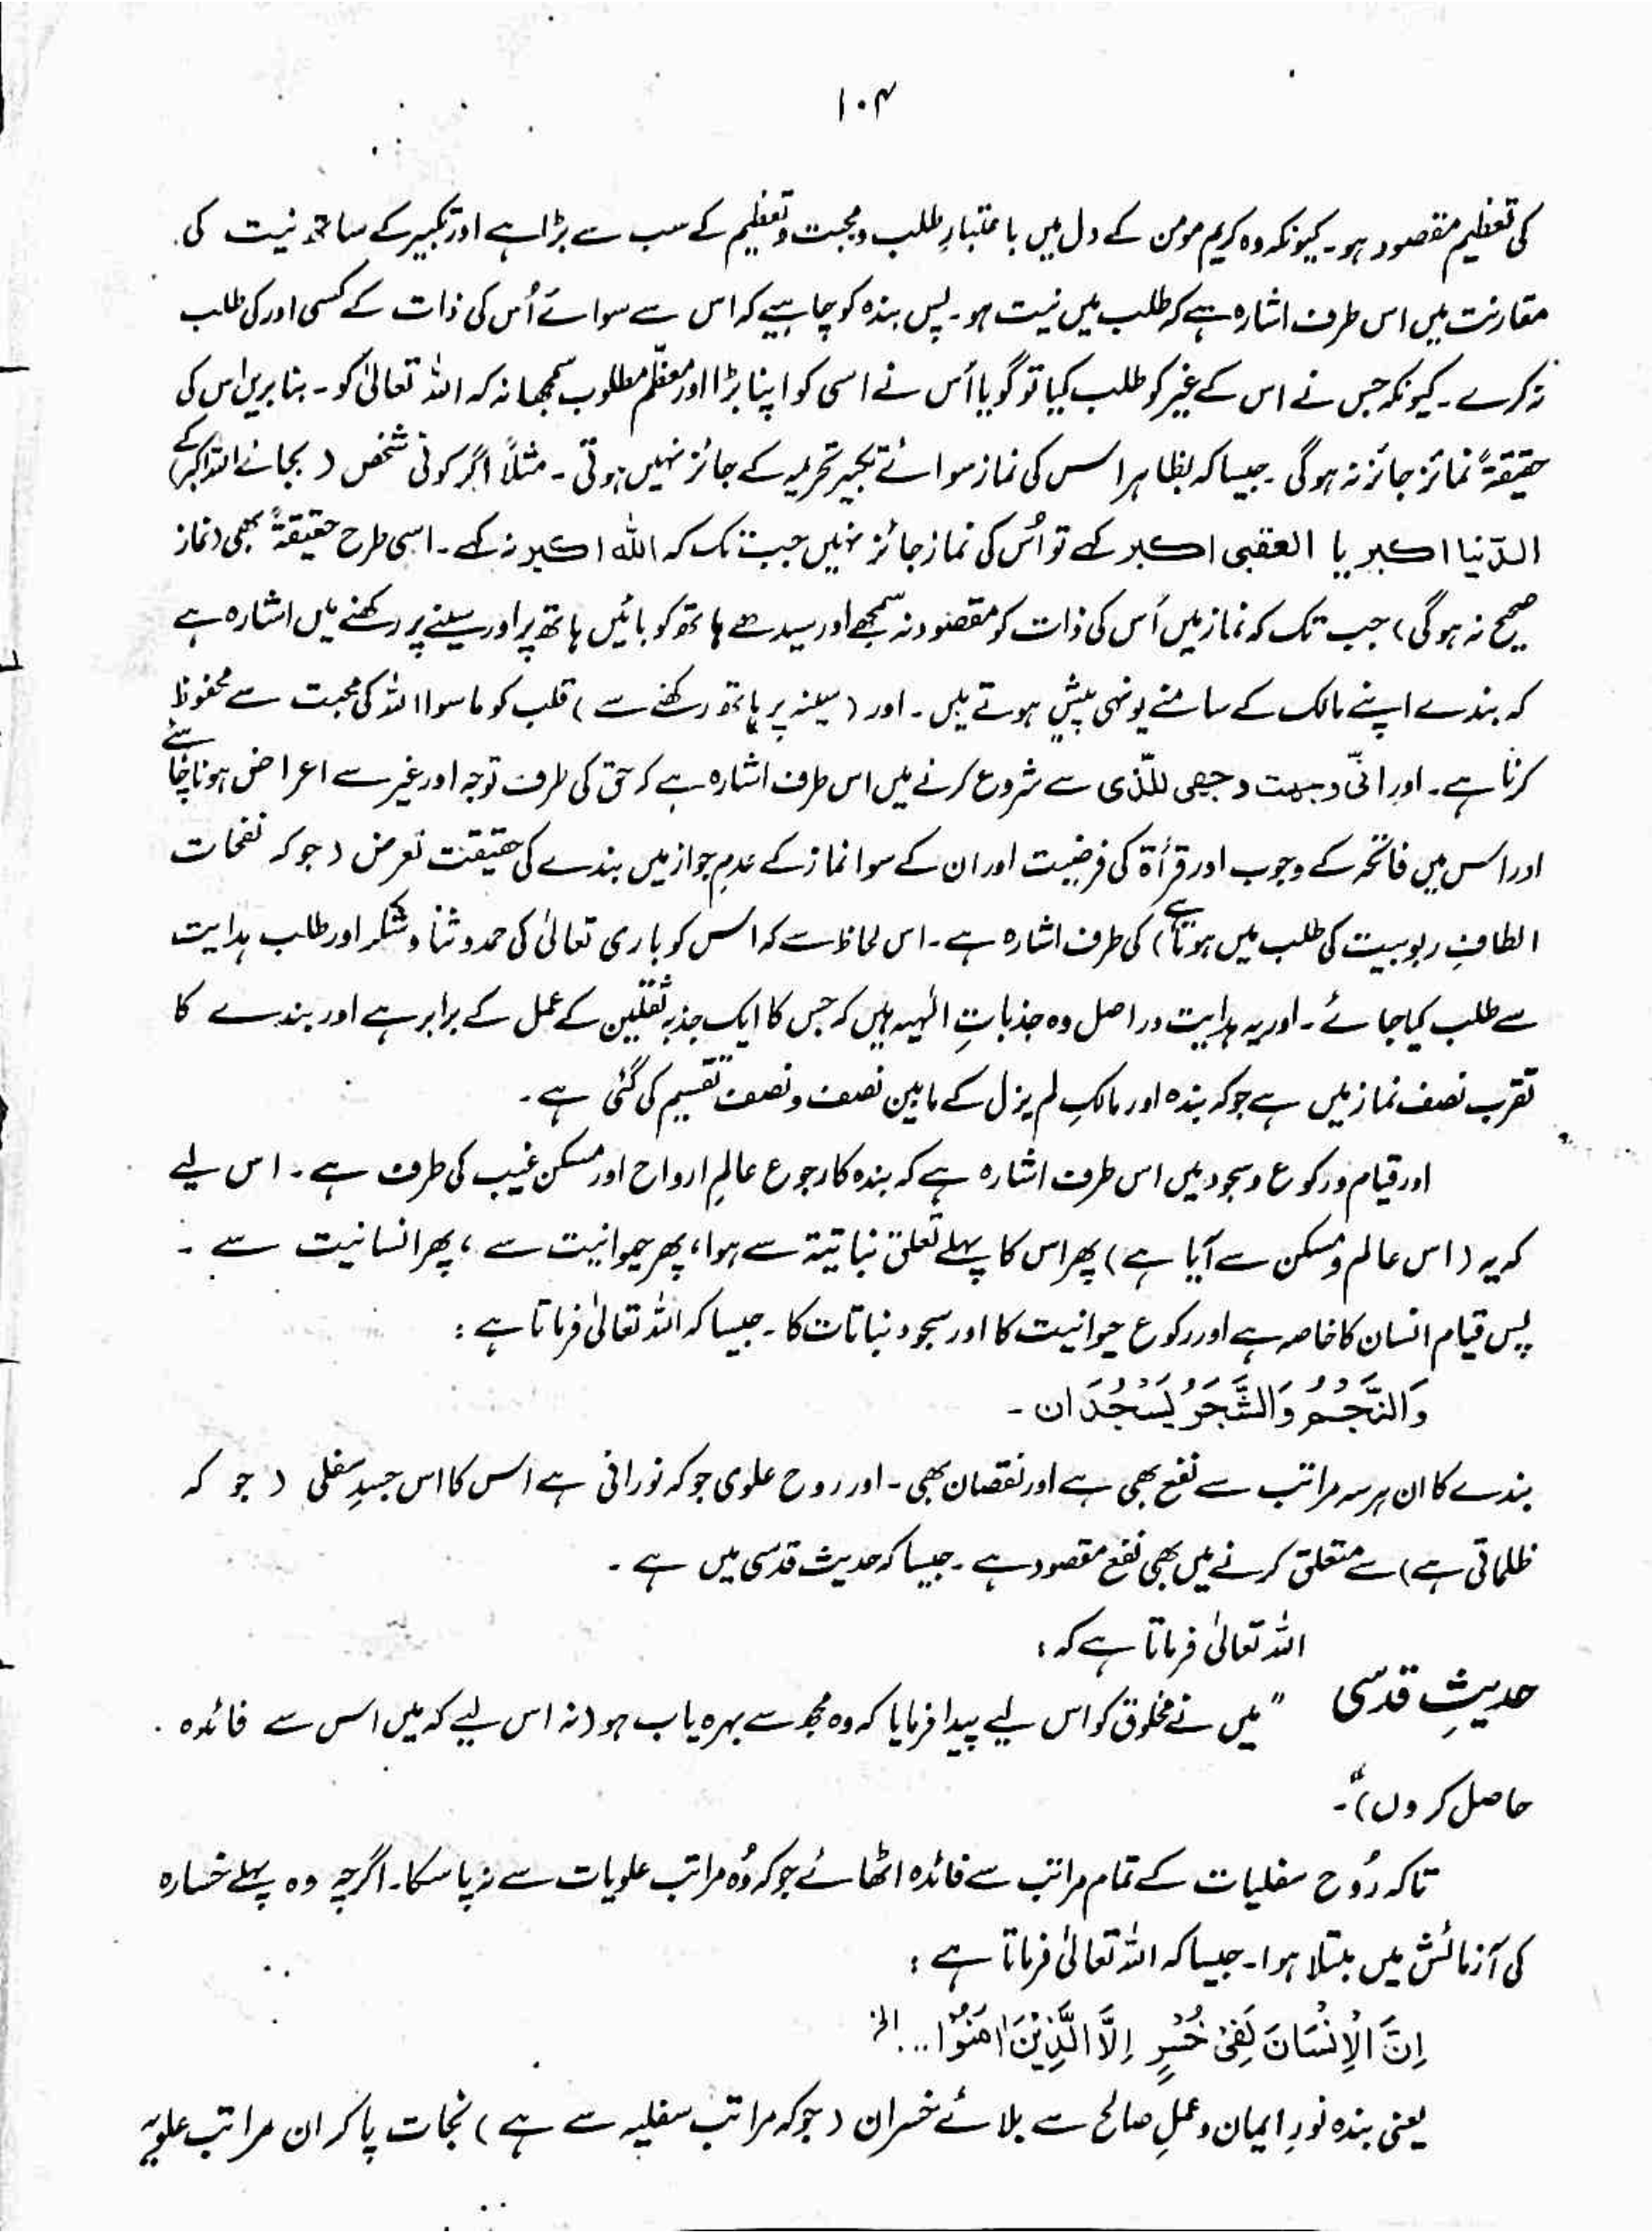 ۱۰۴
کی تعظیم مقصود ہو۔ کیونکہ وہ کریم مومن کے دل میں باعتبارِ طلب و محبت و تعظیم کے سب سے بڑا ہے اور تکبیر کے ساتھ نیت کی
مقارنت میں اس طرف اشارہ ہے کہ طلب میں نیت ہو۔ پس بندہ کو چاہیے کہ اس سے سوائے اُس کی ذات کے کسی اور کی طلب
نہ کرے۔ کیونکہ جس نے اس کے غیر کو طلب کیا تو گویا اُس نے اسی کو اپنا بڑا اور معظّم مطلوب سمجھا نہ کہ اللہ تعالیٰ کو۔ بنا بریں اس کی
حقیقۃً نماز جائز نہ ہوگی۔ جیسا کہ بظاہر اس کی نماز سوائے تکبیر تحریمہ کے جائز نہیں ہوتی۔ مثلاً اگر کوئی شخص (بجائے اللہ اکبر کے)
الدّنیا اکبر یا العقبی اکبر کہے تو اُس کی نماز جائز نہیں جب تک کہ اللہ اکبر نہ کہے۔ اسی طرح حقیقۃً بھی (نماز
صحیح نہ ہوگی) جب تک کہ نماز میں اُس کی ذات کو مقصود نہ سمجھے اور سیدھے ہاتھ کو بائیں ہاتھ پر اور سینے پر رکھنے میں اشارہ ہے
کہ بندے اپنے مالک کے سامنے یونہی پیش ہوتے ہیں۔ اور (سینہ پر ہاتھ رکھنے سے) قلب کو ماسوا اللہ کی محبت سے محفوظ
کرنا ہے۔ اور انّی وجہت وجھی للّذی سے شروع کرنے میں اس طرف اشارہ ہے کہ حق کی طرف توجہ اور غیر سے اعراض ہونا چاہئے
اور اس میں فاتحہ کے وجوب اور قرأۃ کی فرضیت اور ان کے سوا نماز کے عدمِ جواز میں بندے کی حقیقت تعرض (جو کہ نفحات
الطافِ ربوبیت کی طلب میں ہوتا ہے) کی طرف اشارہ ہے۔ اس لحاظ سے کہ اس کو باری تعالیٰ کی حمد و ثنا و شکر اور طلب ہدایت
سے طلب کیا جائے۔ اور یہ ہدایت دراصل وہ جذباتِ الٰہیہ ہیں کہ جس کا ایک جذبہ ثقلین کے عمل کے برابر ہے اور بندے کا
تقرب نصف نماز میں ہے جو کہ بندہ اور مالکِ لم یزل کے مابین نصف و نصف تقسیم کی گئی ہے۔
اور قیام و رکوع و سجود میں اس طرف اشارہ ہے کہ بندہ کا رجوع عالمِ ارواح اور مسکن غیب کی طرف ہے۔ اس لیے
کہ یہ (اس عالم و مسکن سے آیا ہے) پھر اس کا پہلے تعلق نباتیۃ سے ہوا، پھر حیوانیت سے، پھر انسانیت سے۔
پس قیام انسان کا خاصہ ہے اور رکوع حیوانیت کا اور سجود نباتات کا۔ جیسا کہ اللہ تعالیٰ فرماتا ہے:
وَالنَّجْمُ وَالشَّجَرُ يَسْجُدَان۔
بندے کا ان ہر سہ مراتب سے نفع بھی ہے اور نقصان بھی۔ اور روح علوی جو کہ نورانی ہے اس کا اس جسدِ سفلی (جو کہ
ظلماتی ہے) سے متعلق کرنے میں بھی نفع مقصود ہے۔ جیسا کہ حدیث قدسی میں ہے۔
اللہ تعالیٰ فرماتا ہے کہ:
حدیثِ قدسی "میں نے مخلوق کو اس لیے پیدا فرمایا کہ وہ مجھ سے بہرہ یاب ہو (نہ اس لیے کہ میں اس سے فائدہ
حاصل کروں)"۔
تاکہ رُوح سفلیات کے تمام مراتب سے فائدہ اٹھائے جو کہ وُہ مراتب علویات سے نہ پا سکا۔ اگرچہ وہ پہلے خسارہ
کی آزمائش میں مبتلا ہوا۔ جیسا کہ اللہ تعالیٰ فرماتا ہے:
اِنَّ الْاِنْسَانَ لَفِیْ خُسْرٍ اِلَّا الَّذِیْنَ اٰمَنُوْا ... الخ
یعنی بندہ نورِ ایمان و عملِ صالح سے بلائے خسران (جو کہ مراتب سفلیہ سے ہے) نجات پا کر ان مراتب علویہ